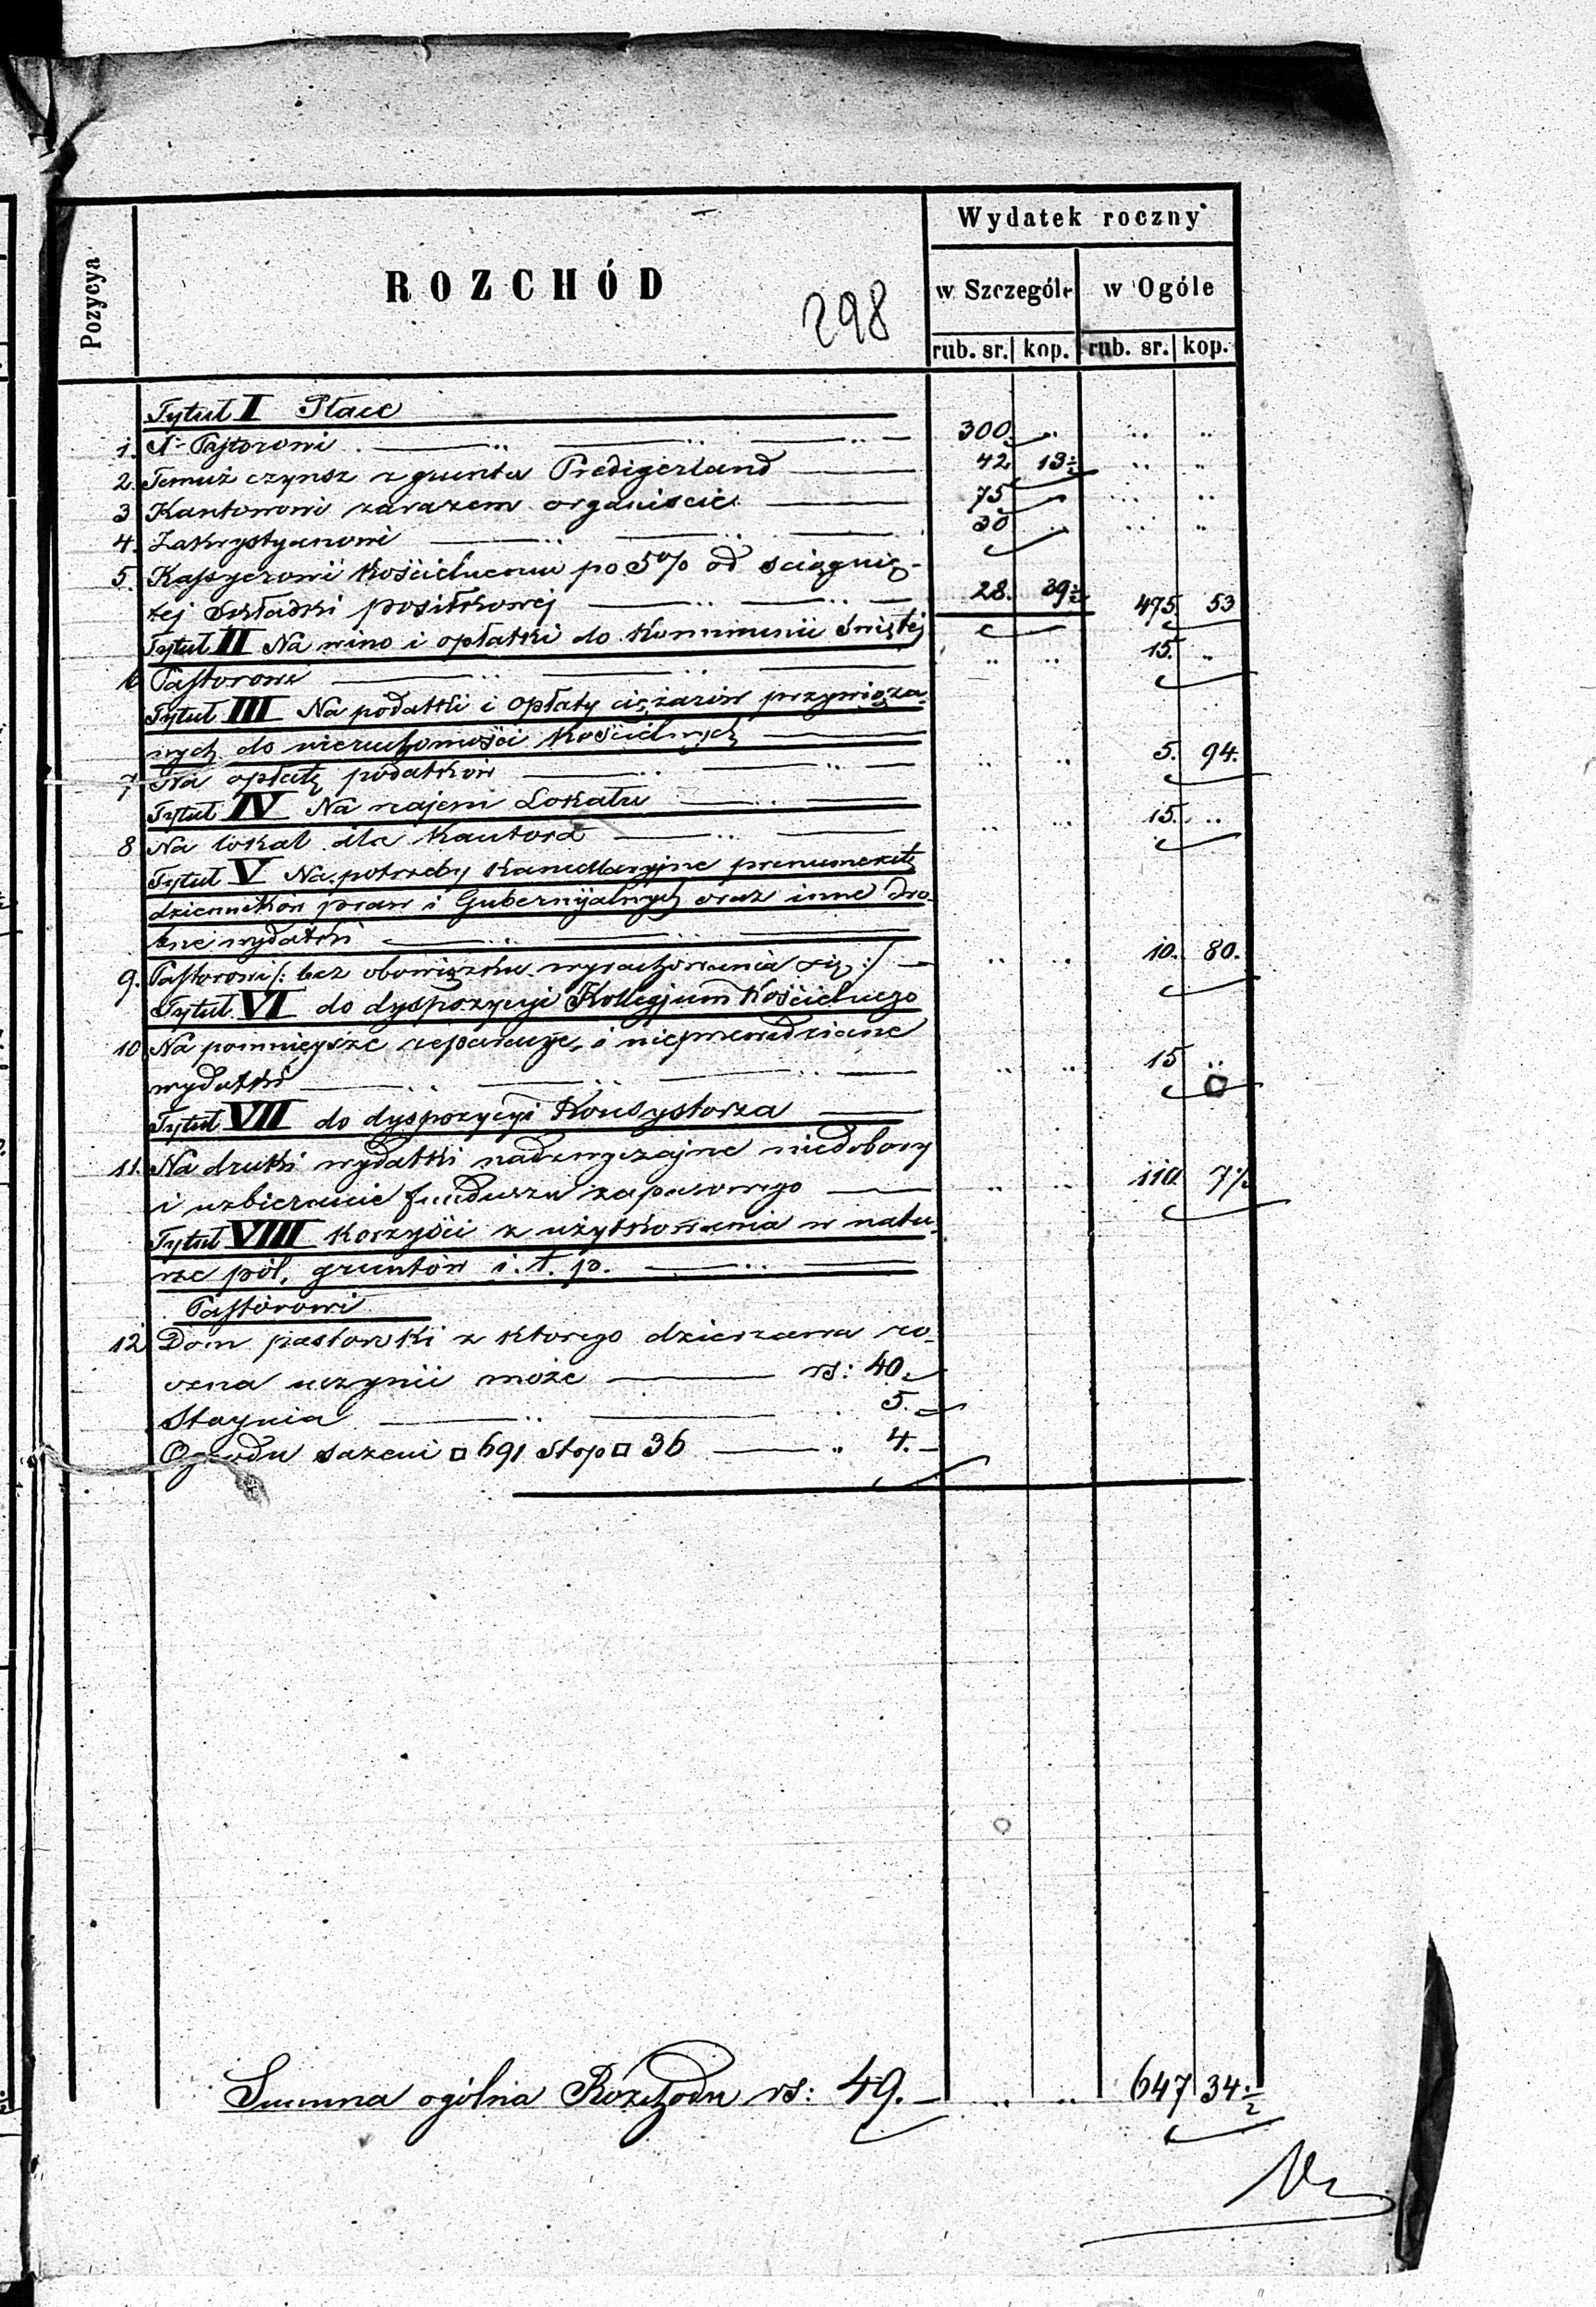 Wydatek roczny
Pozycya
ROZCHÓD
w Szczególe w Ogóle
298
rub. sr. kop. rub. sr. kop.
Tytuł I Płace
1. Pastorowi 300 " " "
2. Temuż czynsz z gruntu Predigerland 42 13 1/2 " "
3 Kantorowi zarazem organiscie 75 " " "
4. Zakrystyanowi 30 " " "
5. Kassyerowi Kościelnemu po 5% od sciągnię-
tej Składki posiłkowej 28. 39 1/2 475 53
Tytuł II Na wino i opłatki do Kommunii Świętej
6 Pastorowi " " 15. "
Tytuł III Na podatki i opłaty ciężarów przywiąza-
nych do nieruchomości Kościelnych
7 Na opłatę podatków " " 5. 94.
Tytuł IV Na najem Lokalu
8 Na lokal dla Kantora " " 15. "
Tytuł V Na potrzeby Kancellaryjne prenumeratę
dzienników praw i Gubernijalnych oraz inne dro-
bne wydatki
9. Pastorowi /: bez obowiązku wyrachowania się :/ " " 10. 80.
Tytuł VI do dyspozycyi Kollegjum Kościelnego
10 Na pomniejsze reparacye, i nieprzewidziane
wydatki " " 15 "
Tytuł VII do dyspozycyi Konsystorza
11. Na druki wydatki nadzwyczajne niedobory
i uzbieranie funduszu zapasowego " " 110. 7 1/2
Tytuł VIII Korzyści z użytkowania w natu-
rze pól, gruntów i. t. p.
Pastorowi
12 Dom pastorski z ktorego dzierzawa ro-
czna uczynić może rs: 40.
Staynia " 5.
Ogrodu sążeni □ 691 Stop □ 36 " 4.
Summa ogólna Rozchodu rs: 49. " " 647 34 1/2